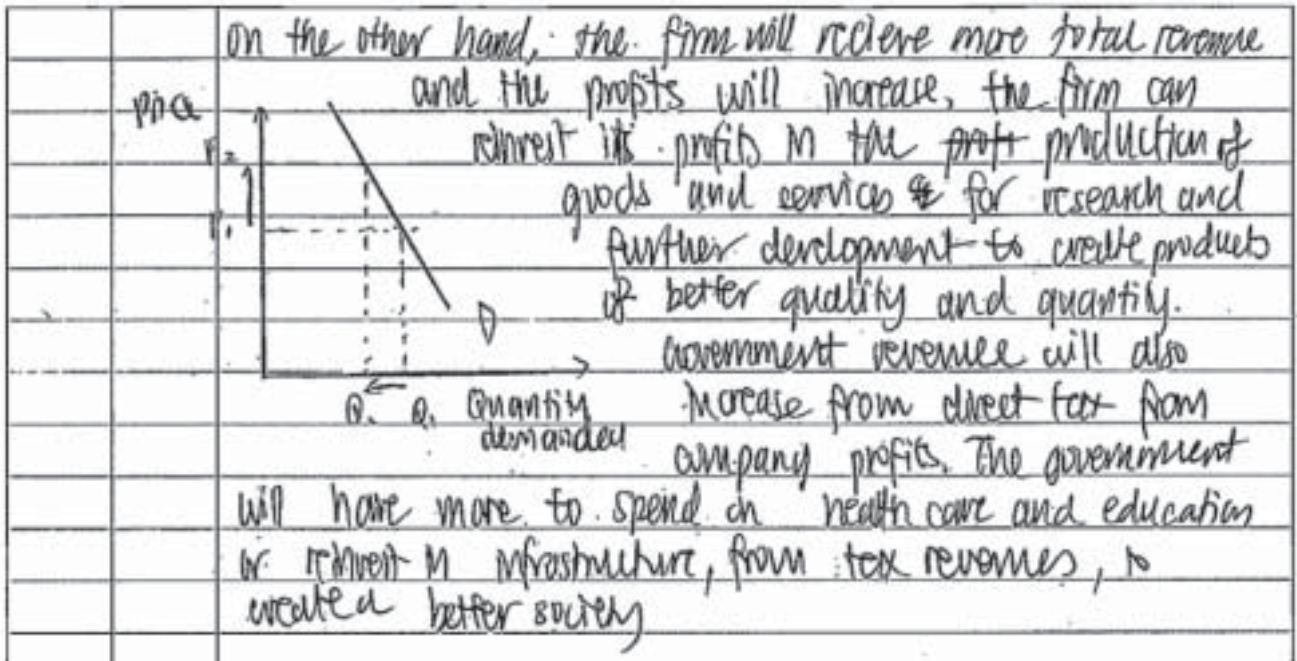 on the other hand, the firm will recieve more total revenue
and the profits will increase, the firm can
price
reinvest its profits in the proft production of
P2
goods and services for research and
P1
further development to create products
of better quality and quantity.
D
Government revenue will also
Q2 Q1 Quantity demanded
increase from direct tax from
company profits. The government
will have more to spend on health care and education
or reinvest in infrastructure, from tax revenues, to
create a better society